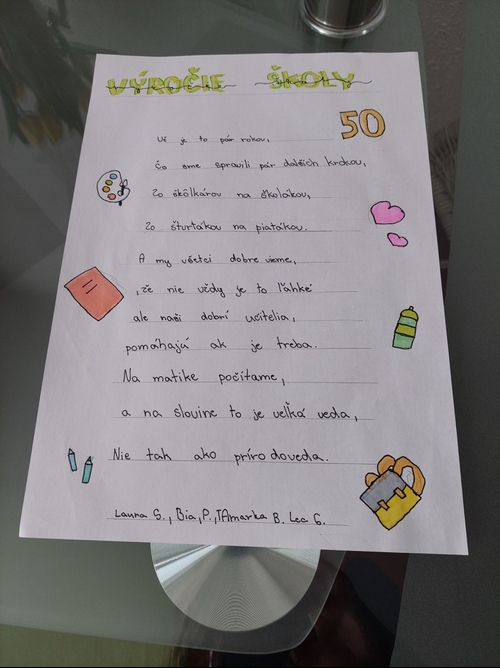 VÝROČIE ŠKOLY
50
Už je to pár rokov,
čo sme spravili pár dalších krokov,
Zo škôlkárov na školákov,
Zo štvrtákov na piatakov.
A my všetci dobre vieme,
,že nie vždy je to ľahké
ale naši dobrí učitelia,
pomáhajú ak je treba.
Na matike počítame,
a na slovine to je veľká veda,
Nie tak ako prírodoveda.
Laura S., Bia,P.,TAmarka B. Lea G.